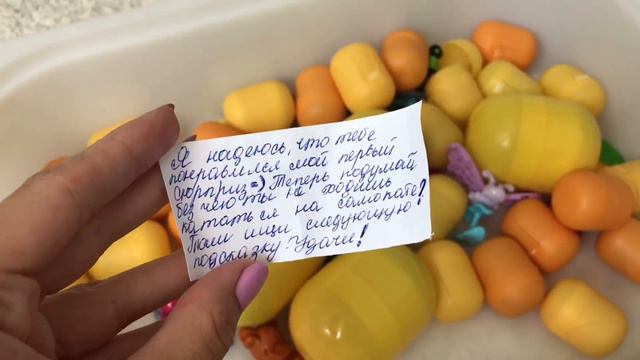 Я надеюсь, что тебе
понравился мой первый
сюрприз =) Теперь подумай
без чего ты не ходишь
кататься на самокате?
Там ищи следующую
подсказку. Удачи!